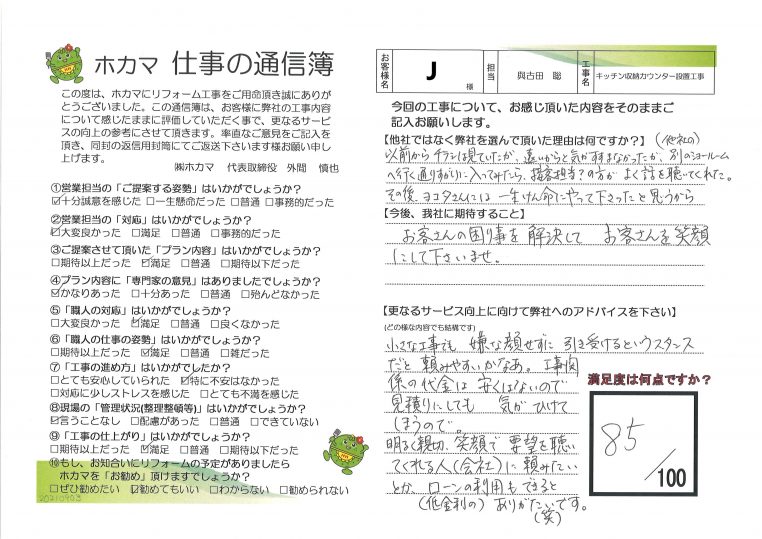 ホカマ 仕事の通信簿
この度は、ホカマにリフォーム工事をご用命頂き誠にありが
とうございました。この通信簿は、お客様に弊社の工事内容
について感じたままに評価していただく事で、更なるサービ
スの向上の参考にさせて頂きます。率直なご意見をご記入を
頂き、同封の返信用封筒にてご返送下さいます様お願い申し
上げます。
㈱ホカマ 代表取締役 外間 慎也
①営業担当の「ご提案する姿勢」はいかがでしょうか?
☑十分誠意を感じた □一生懸命だった □普通 □事務的だった
②営業担当の「対応」はいかがでしょうか?
☑大変良かった □満足 □普通 □事務的だった
③ご提案させて頂いた「プラン内容」はいかがでしょうか?
□期待以上だった ☑満足 □普通 □期待以下だった
④プラン内容に「専門家の意見」はありましたでしょうか?
☑かなりあった □十分あった □普通 □殆んどなかった
⑤「職人の対応」はいかがでしょうか?
□大変良かった ☑満足 □普通 □良くなかった
⑥「職人の仕事の姿勢」はいかがでしょうか?
□期待以上だった ☑満足 □普通 □雑だった
⑦「工事の進め方」はいかがでしたか?
□とても安心していられた ☑特に不安はなかった
□対応に少しストレスを感じた □とても不満を感じた
⑧現場の「管理状況(整理整頓等)」はいかがでしょうか?
☑言うことなし □配慮があった □普通 □できていない
⑨「工事の仕上がり」はいかがでしょうか?
□期待以上だった ☑満足 □普通 □期待以下だった
⑩もし、お知合いにリフォームの予定がありましたら
ホカマを「お勧め」頂けますでしょうか?
□ぜひ勧めたい ☑勧めてもいい □わからない □勧められない
20210903
お客様名 J 様 担当 與古田 聡 工事名 キッチン収納カウンター設置工事
今回の工事について、お感じ頂いた内容をそのままご
記入お願いします。
【他社ではなく弊社を選んで頂いた理由は何ですか?】(他社の)
以前からチラシは見ていたが、遠いからと気がすすまなかったが、別のショールーム
へ行く通りすがりに入ってみたら、接客担当?の方が よく話を聴いてくれた。
その後、ヨコタさんには一生けん命にやって下さったと思うから
【今後、我社に期待すること】
お客さんの困り事を解決して お客さんを笑顔
にして下さいませ。
【更なるサービス向上に向けて弊社へのアドバイスを下さい】
(どの様な内容でも結構です)
小さな工事でも 嫌な顔せずに 引き受けるというスタンス
だと 頼みやすいかなあ。工事関
係の代金は 安くはないので
見積りにしても 気が ひけて
しまうので。
明るく親切、笑顔で 要望を聴い
てくれる人(会社)に 頼みたい
とか、ローンの利用も できると
(低金利の) ありがたいです。
(笑)
満足度は何点ですか?
85/100